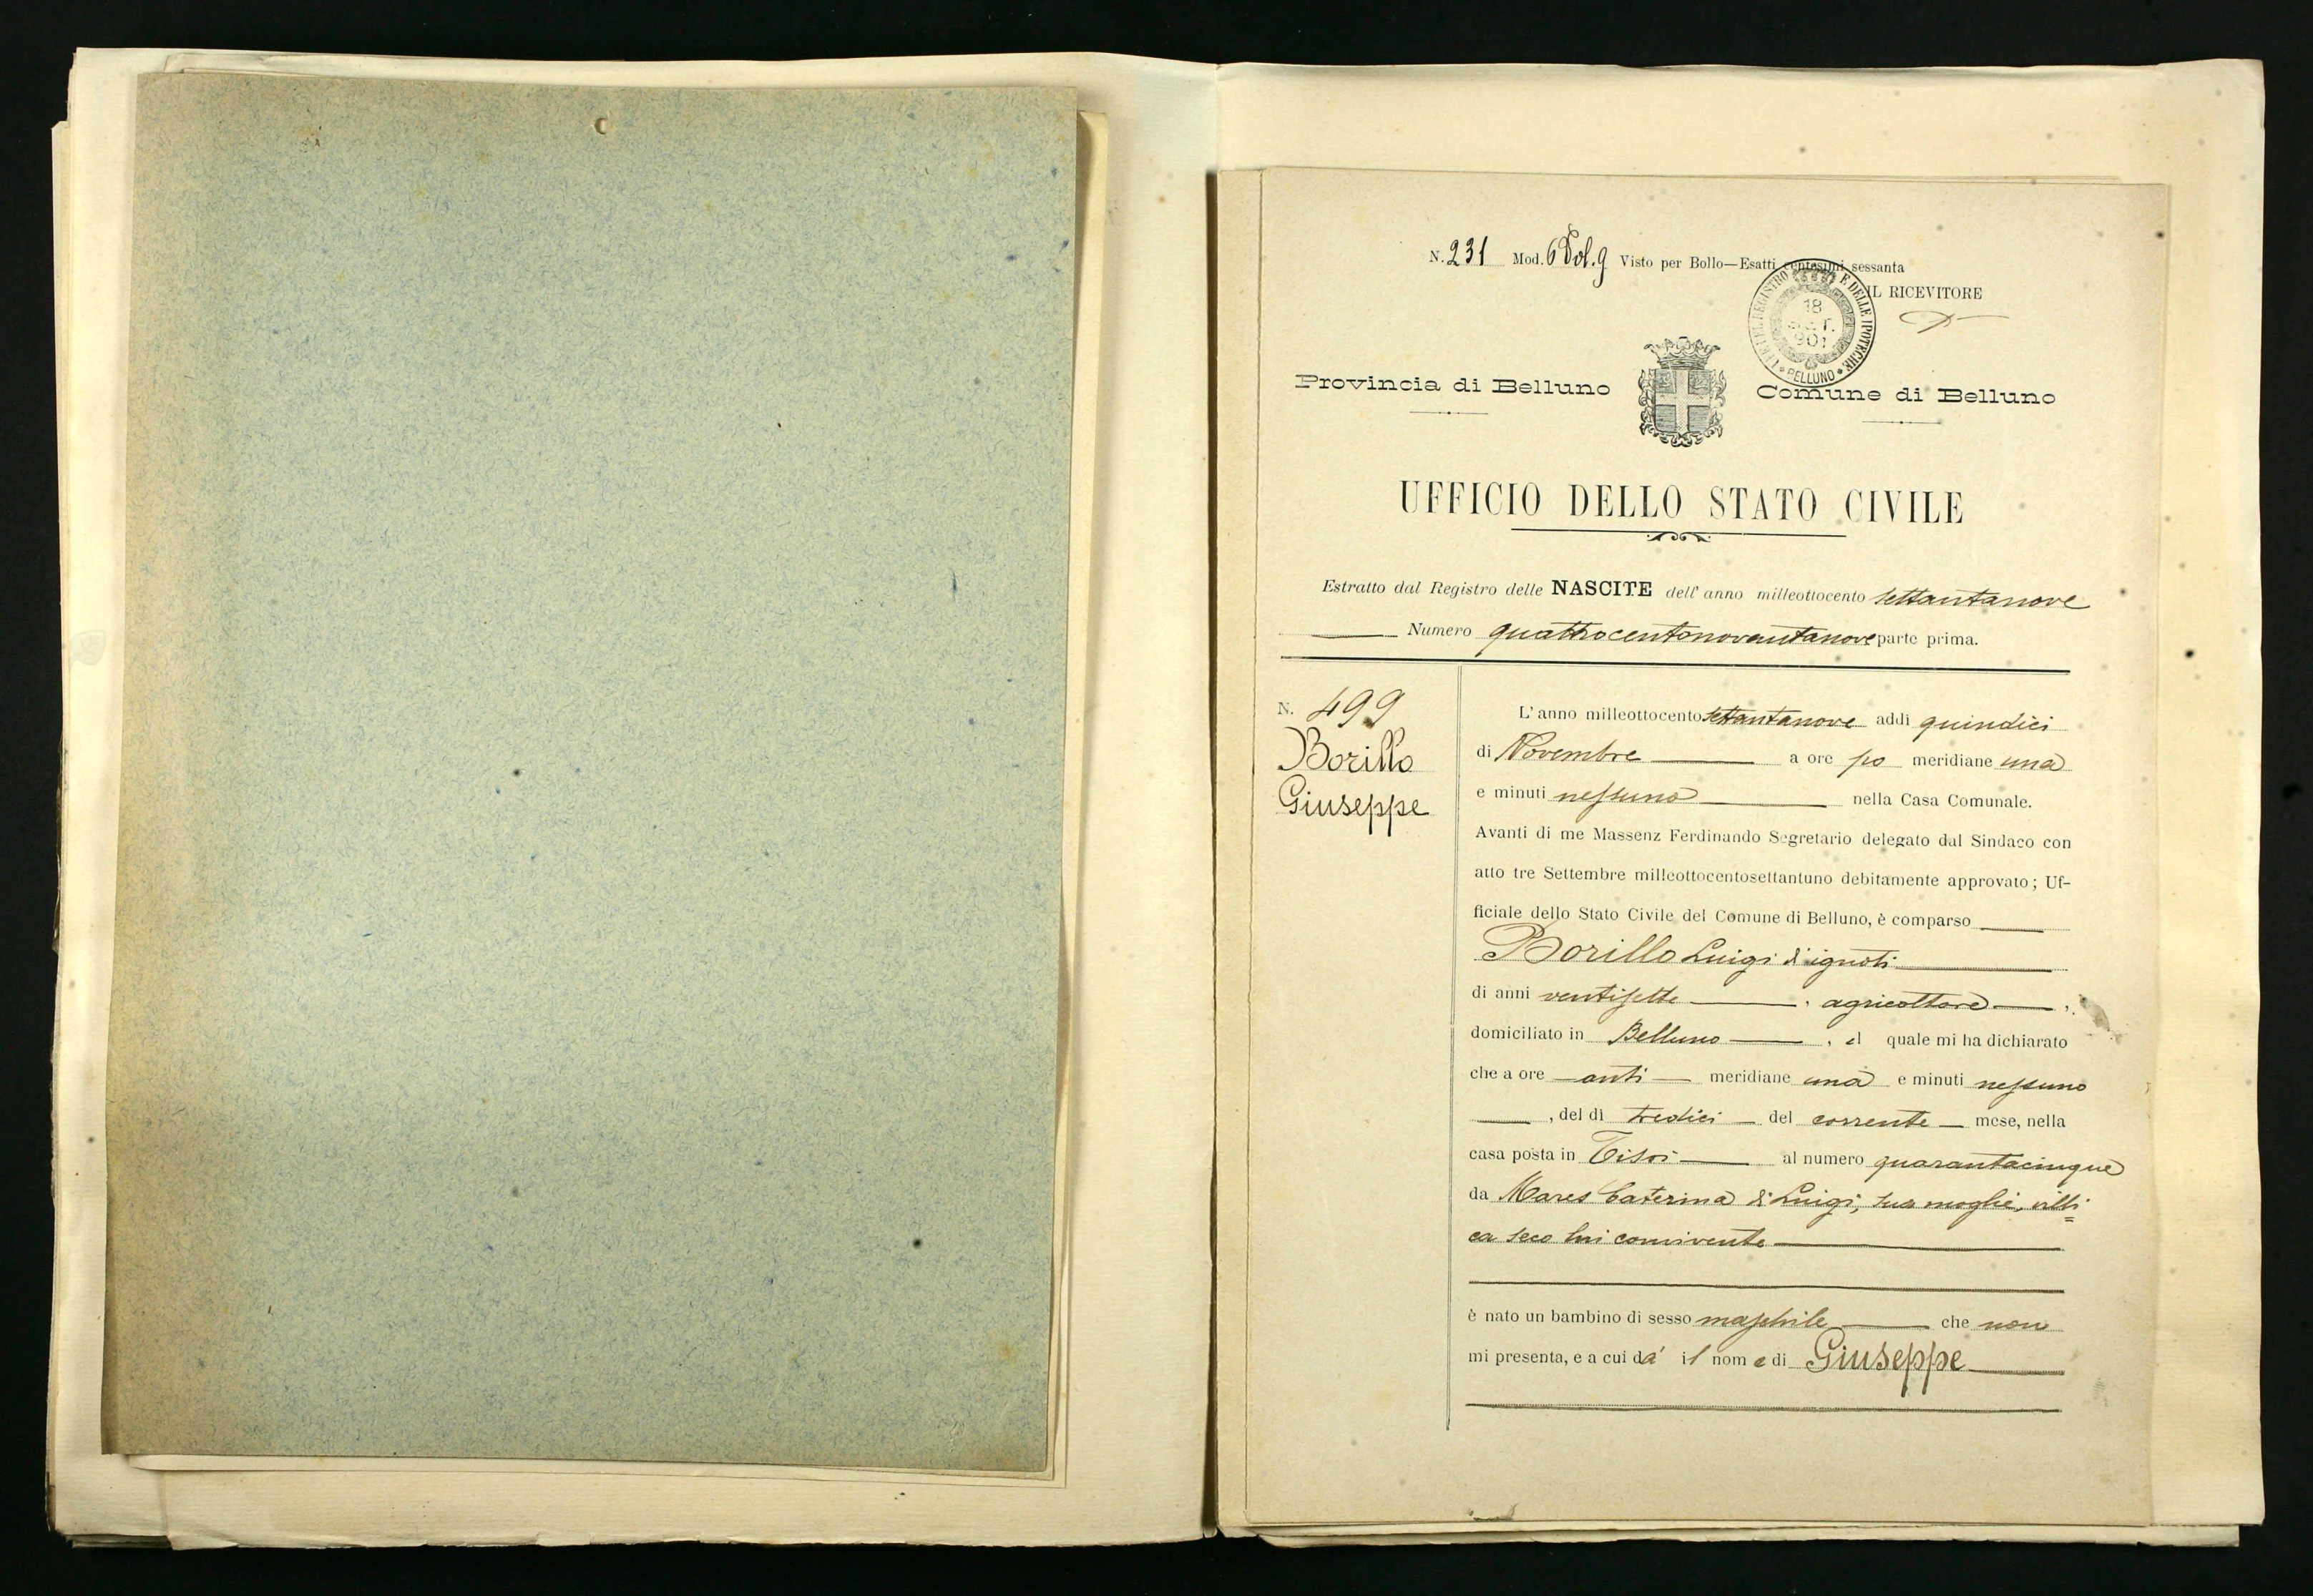 N. 231 Mod. 6 Vol. 9 Visto per Bollo—Esatti centesimi sessanta
IL RICEVITORE
REGISTRO E DELLE IPOTECHE
18
901
BELLUNO
Provincia di Belluno
Comune di Belluno
UFFICIO DELLO STATO CIVILE
Estratto dal Registro delle NASCITE dell' anno milleottocento settantanove
Numero quattrocentonovantanove parte prima.
N. 499
Borillo
Giuseppe
L'anno milleottocento settantanove addì quindici
di Novembre a ore po meridiane una
e minuti nessuno nella Casa Comunale.
Avanti di me Massenz Ferdinando Segretario delegato dal Sindaco con
atto tre Settembre milleottocentosettantuno debitamente approvato; Uf-
ficiale dello Stato Civile del Comune di Belluno, è comparso
Borillo Luigi di ignoti
di anni ventisette, agricoltore,
domiciliato in Belluno, il quale mi ha dichiarato
che a ore anti meridiane una e minuti nessuno
, del dì tredici del corrente mese, nella
casa posta in Tisoi al numero quarantacinque
da Mares Caterina di Luigi, sua moglie, villi=
ca seco lui convivente
è nato un bambino di sesso maschile che non
mi presenta, e a cui dà il nome di Giuseppe